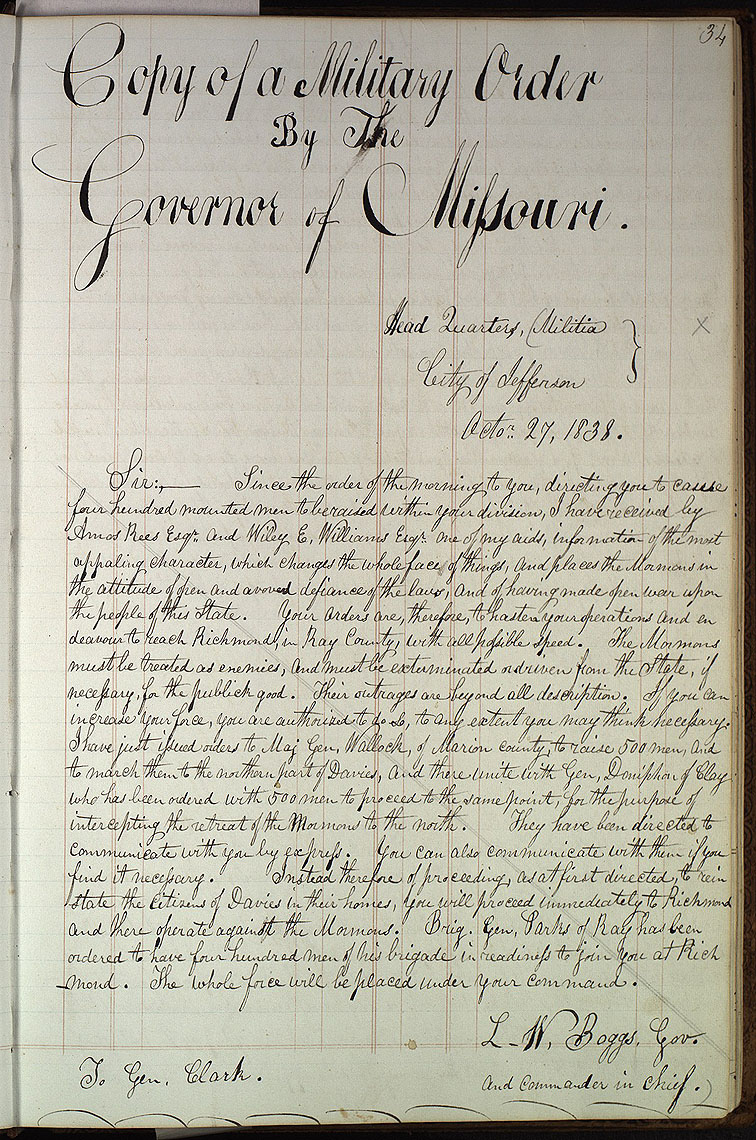 34
Copy of a Military Order
By The
Governor of Missouri.
Head Quarters, Militia
City of Jefferson
Octor. 27, 1838.
Sir:,— Since the order of the morning to you, directing you to causse
four hundred mounted men to be raised within your division, I have received by
Amos Rees Esqr. and Wiley E, Williams Esqr. one of my aids, information of the most
appaling character, which changes the whole face of things, and places the Mormons in
the attitude of open and avowed defiance of the laws, and of having made open war upon
the people of this State. Your orders are, therefore, to hasten your operations and en
deavour to reach Richmond, in Ray County, with all possible speed. The Mormons
must be treated as enemies, and must be exterminated or driven from the State, if
necessary, for the publick good. Their outrages are beyond all description. If you can
increase your force, you are authorized to do so, to any extent you may think necessary.
I have just issued orders to Maj Gen, Wallock, of Marion county, to raise 500 men, and
to march them to the northern part of Davies, and there unite with Gen, Doniphon of Clay
who has been ordered with 500 men to proceed to the same point, for the purpose of
intercepting the retreat of the Mormons to the north. They have been directed to
communicate with you by express. You can also communicate with them if you
find it necessary. Instead therefore of proceeding, as at first directed, to rein
state the citizens of Davies in their homes, you will proceed immediately to Richmond
and there operate against the Mormons. Brig. Gen, Parks of Ray has been
ordered to have four hundred men of his brigade in readiness to join you at Rich
–mond. The whole force will be placed under your command.
L– W, Boggs, Gov.
To Gen, Clark.
and commander in chief.